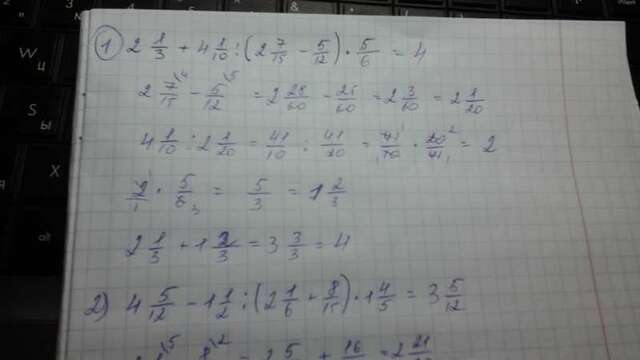 1) 2 1/3 + 4 1/10 : (2 7/15 - 5/12) · 5/6 = 4
2 7/15 \4 - 5/12 \5 = 2 28/60 - 25/60 = 2 3/60 = 2 1/20
4 1/10 : 2 1/20 = 41/10 : 41/20 = 41/10 · 20/41 = 2
2/1 · 5/6 = 5/3 = 1 2/3
2 1/3 + 1 2/3 = 3 3/3 = 4
2) 4 5/12 - 1 1/2 : (2 1/6 + 8/15) · 1 4/5 = 3 5/12
W
Ц
S
Ы
X